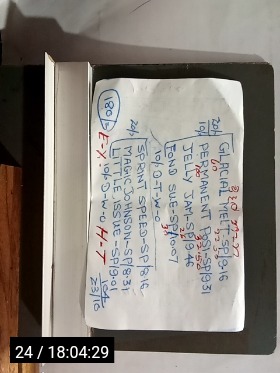 GLACIAL MELT-SP/9.16
20/- PERMANENT POST-SP/9.31
10/- JELLY JAM-SP/9.46
FOND SUE-SP/10.07
10/. D-T-W-O
SPRINT SPEED-SP/8.16
20/- MAGIC JOHNSON-SP/8.31
LITTLE ISSUE-SP/9.01
10/. D-W-O
180=
E-X. H-T
24 / 18:04:29